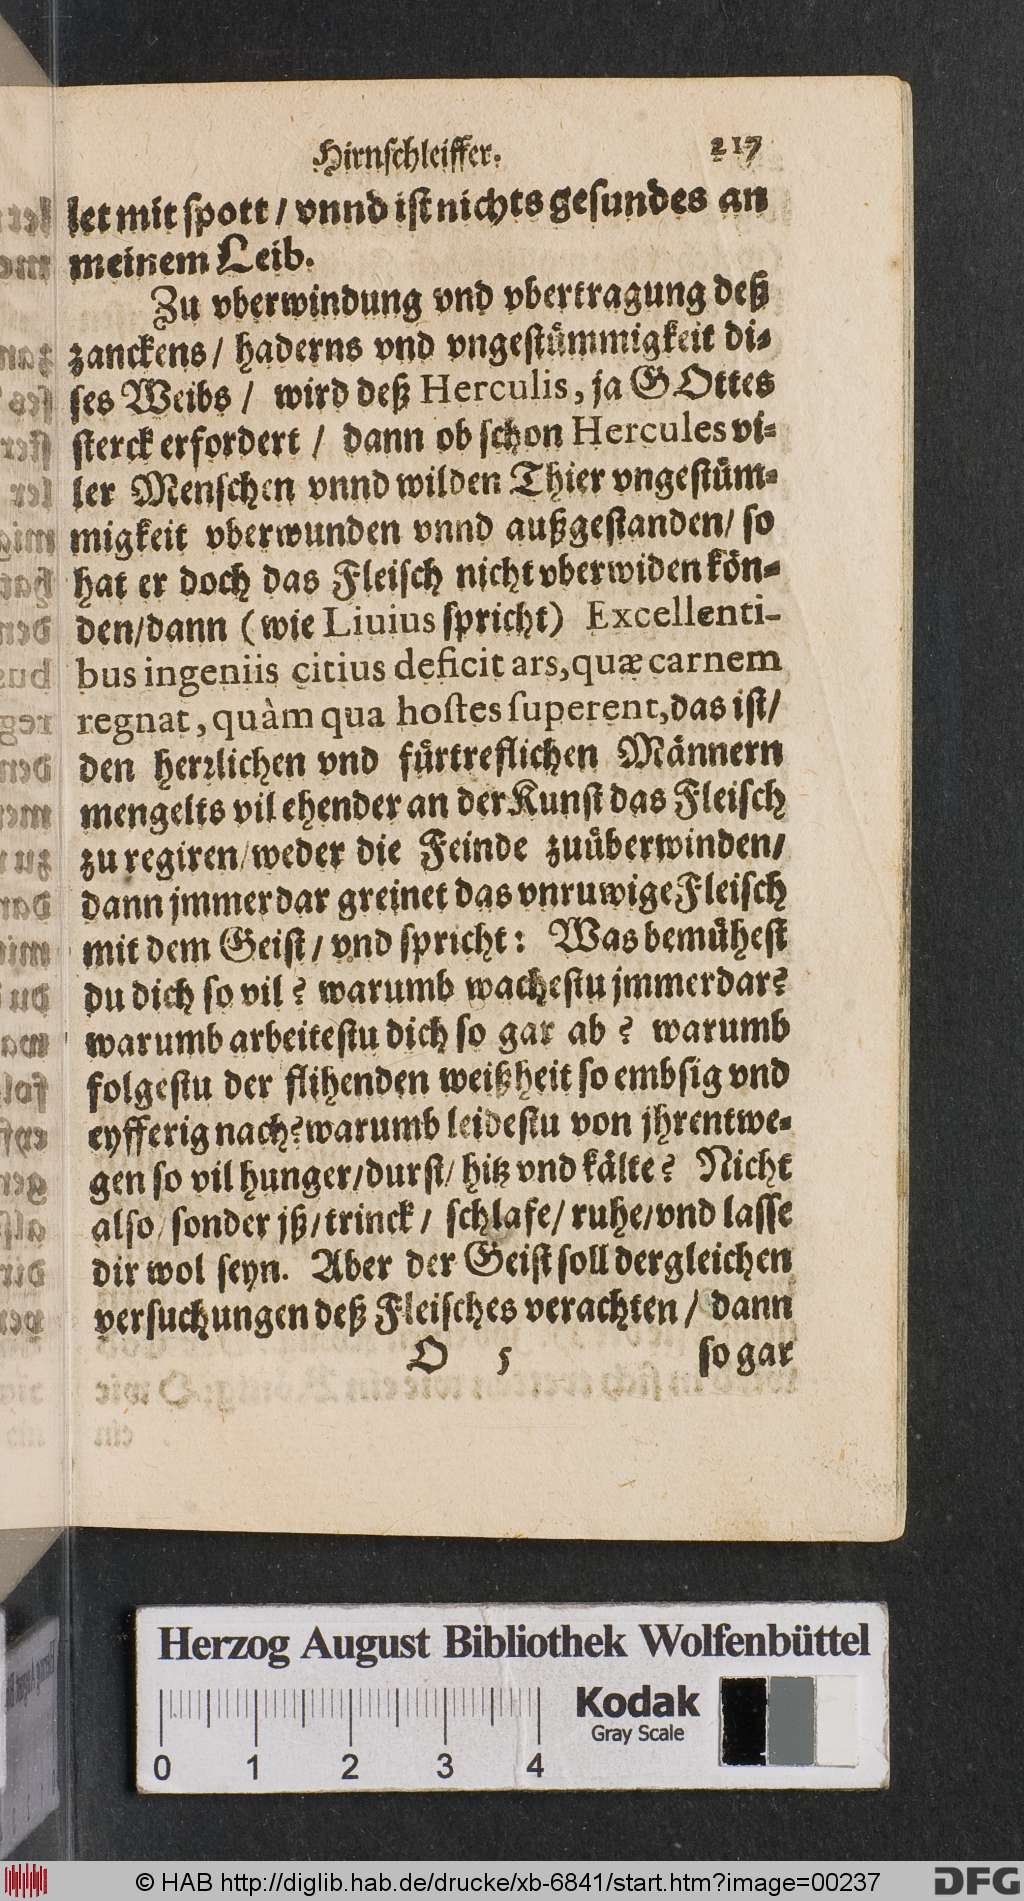 Hirnschleiffer. 217
let mit spott / vnnd ist nichts gesundes an
meinem Leib.
Zu vberwindung vnd vbertragung deß
zanckens / haderns vnd vngestuͤmmigkeit di-
ses Weibs / wird deß Herculis, ja GOttes
sterck erfordert / dann ob schon Hercules vi-
ler Menschen vnnd wilden Thier vngestuͤm-
migkeit vberwunden vnnd außgestanden / so
hat er doch das Fleisch nicht vberwiden koͤn-
den / dann (wie Liuius spricht) Excellenti-
bus ingeniis citius deficit ars, quæ carnem
regnat, quàm qua hostes superent, das ist /
den herrlichen vnd fuͤrtreflichen Maͤnnern
mengelts vil ehender an der Kunst das Fleisch
zu regiren / weder die Feinde zuuͤberwinden /
dann jmmerdar greinet das vnruwige Fleisch
mit dem Geist / vnd spricht: Was bemuͤhest
du dich so vil? warumb wachestu jmmerdar?
warumb arbeitestu dich so gar ab? warumb
folgestu der flihenden weißheit so embsig vnd
eyfferig nach? warumb leidestu von jhrentwe-
gen so vil hunger / durst / hitz vnd kaͤlte? Nicht
also / sonder jß / trinck / schlafe / ruhe / vnd lasse
dir wol seyn. Aber der Geist soll dergleichen
versuchungen deß Fleisches verachten / dann
O 5 so gar
Herzog August Bibliothek Wolfenbüttel
Kodak
Gray Scale
0 1 2 3 4
© HAB http://diglib.hab.de/drucke/xb-6841/start.htm?image=00237
DFG